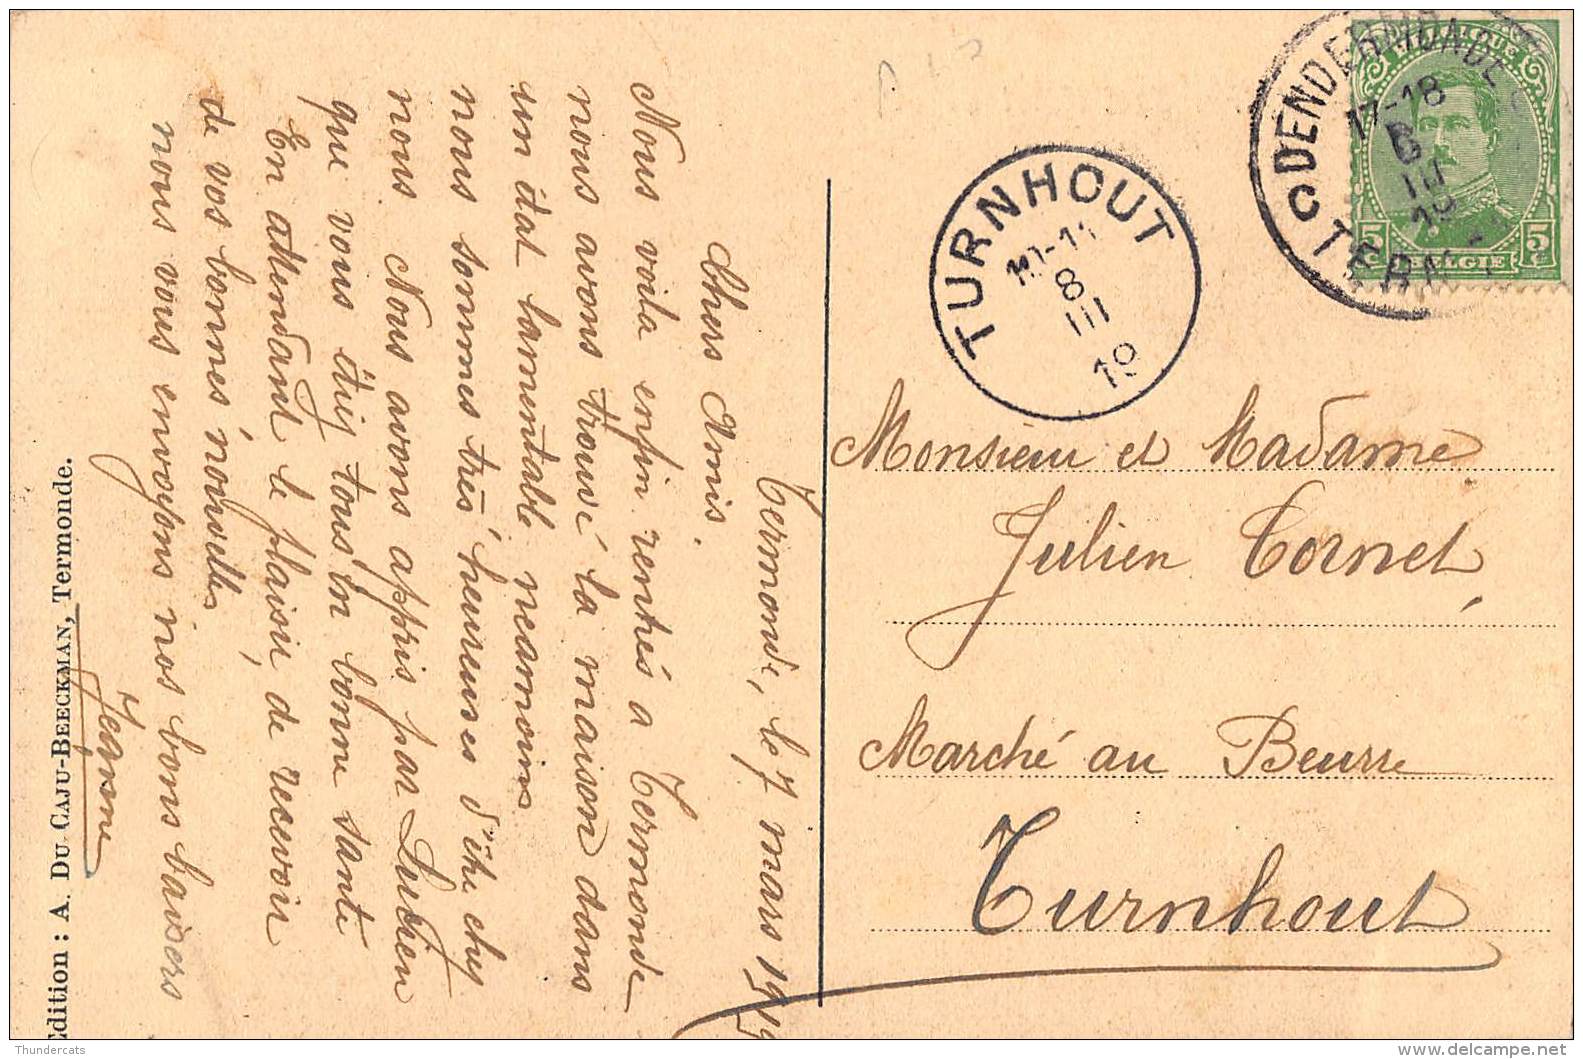 Termonde, le 7 mars 1919
Chers Amis.
Nous voila enfin rentrés a Termonde
nous avons trouvé la maison dans
un état lamentable neamoins
nous sommes très heureuses d'être chez
nous. Nous avons appris par Lucien
que vous étiez tous in bonne santé
En attendant le plaisir, de recevoir
de vos bonnes nouvelles
nous vous envoyons nos bons baisers
Jeanne
Edition : A. DU CAJU-BEECKMAN, Termonde.
DENDERMONDE
17-18
III
19
TERM
BELGIE
5c 5c
TURNHOUT
10-11
8
III
19
Monsieur et Madame
Julien Cornet
Marché au Beurre
Turnhout
Thundercats
www.delcampe.net